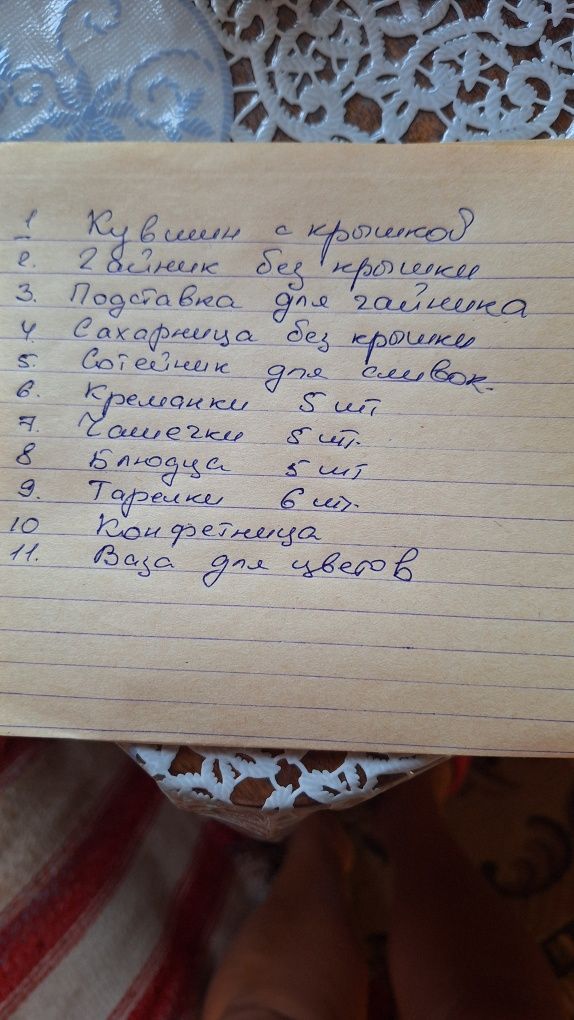 1 Кувшин с крышкой
2. Чайник без крышки
3. Подставка для чайника
4. Сахарница без крышки
5. Сотейник для сливок.
6. Креманки 5 шт
7. Чашечки 5 шт.
8 Блюдца 5 шт
9. Тарелки 6 шт.
10 Конфетница
11. Ваза для цветов